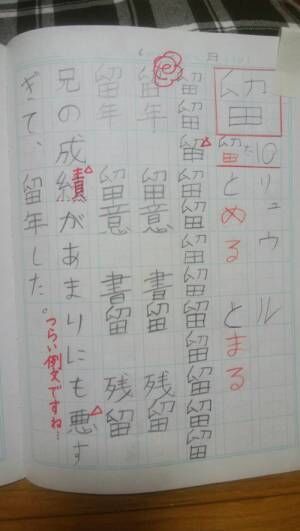 日
留
留た10
リュウ ル
とめる とまる
留留留留留留留留留留留留
留年 留意 書留 残留
留年 留意 書留 残留
兄の成績があまりにも悪す
ぎて、留年した。
つらい例文ですね…